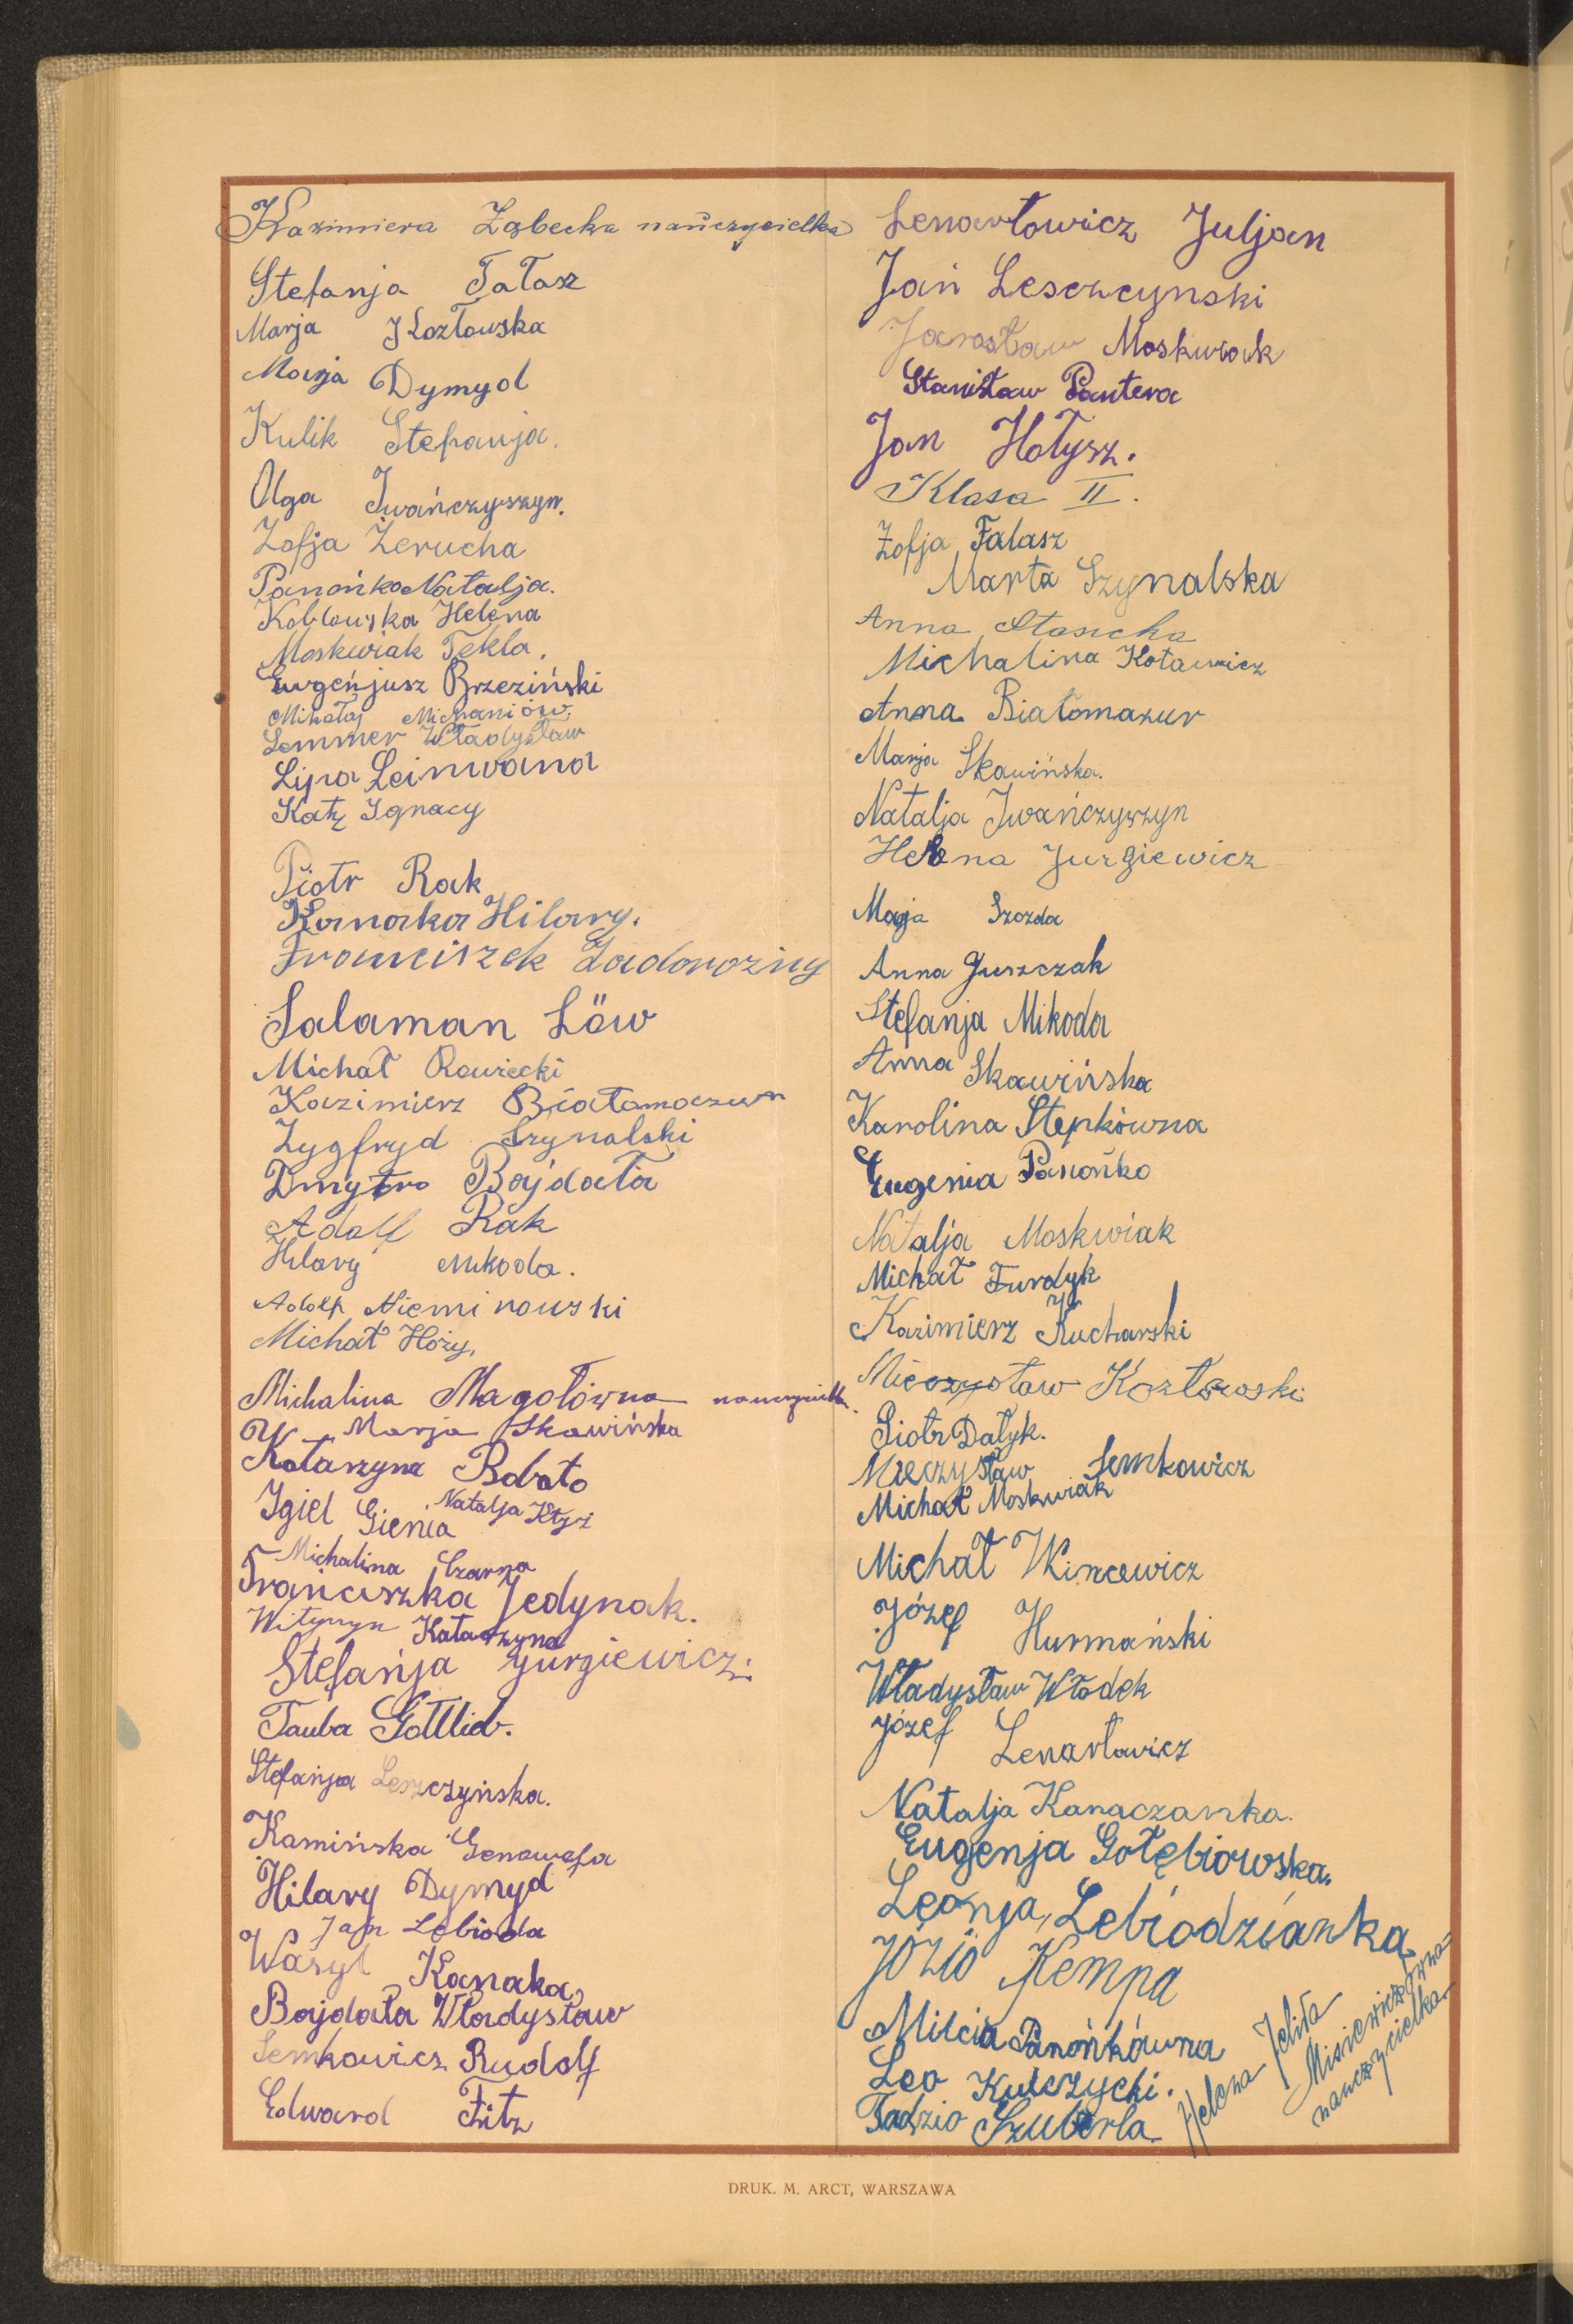 Kazimiera Ząbecka nauczycielka
Stefanja Tałasz
Marja Kozłowska
Marja Dymyd
Kulik Stefanja.
Olga Iwańczyszyn.
Zofja Żerucha
Panońko Natalja.
Kozłowska Helena
Moskwiak Tekla.
Eugeńjusz Brzeziński
Mikołaj Michaniów.
Lemmer Władysław
Lipa Leinwand
Katz Ignacy
Piotr Rak
Kanaka Hilary.
Franciszek Zadorożny
Salaman Löw
Michał Rawiecki
Kazimierz Białomazur
Zygfryd Szynalski
Dmytro Bajdała
Adolf Rak
Hilary Mikoda.
Adolf Nieminowski
Michał Hoży.
Michalina Magotówna nauczycielka.
Marja Skawińska
Katarzyna Bobato
Igiel Gienia
Natalja
Michalina Czarna
Frańciszka Jedynak.
Witynyn Katarzyna
Stefańja Jurgiewicz.
Tauba Gottlieb.
Stefanja Leszczyńska.
Kamińska Genowefa
Hilary Dymyd
Jan Lebioda
Wasyl Kanaka
Bajdała Władysław
Semkowicz Rudolf
Edward Fitz
Lenartowicz Juljan
Jan Lesczcynski
Jarosław Moskwiak
Stanisław Pantera
Jan Hołysz.
Klasa II.
Zofja Fałasz
Marta Szynalska
Anna Stasicha
Michalina Kotawicz
Anna Białomazur
Marja Skawińska.
Natalja Iwańczyszyn
Helena Jurgiewicz
Marja Szozda
Anna Juszczak
Stefanja Mikoda
Anna Skawińska
Karolina Stepkówna
Eugenia Panońko
Natalja Moskwiak
Michał Furdyk
Kazimierz Kucharski
Mieczysław Kozłowski
Piotr Datyk.
Mieczysław Semkowicz
Michał Moskwiak
Michał Wincewicz
Józef Hurmański
Władysław Włodek
Józef Lenartowicz
Natalja Kanaczanka.
Eugenja Gołębiowska.
Leonja, Lebiodzianka
Józio Kempa
Milcia Panońkówna
Leo Kulczycki.
Tadzio Szuberla
Helena Jelita
Misiewiczówna=
nauczycielka.
DRUK. M. ARCT, WARSZAWA